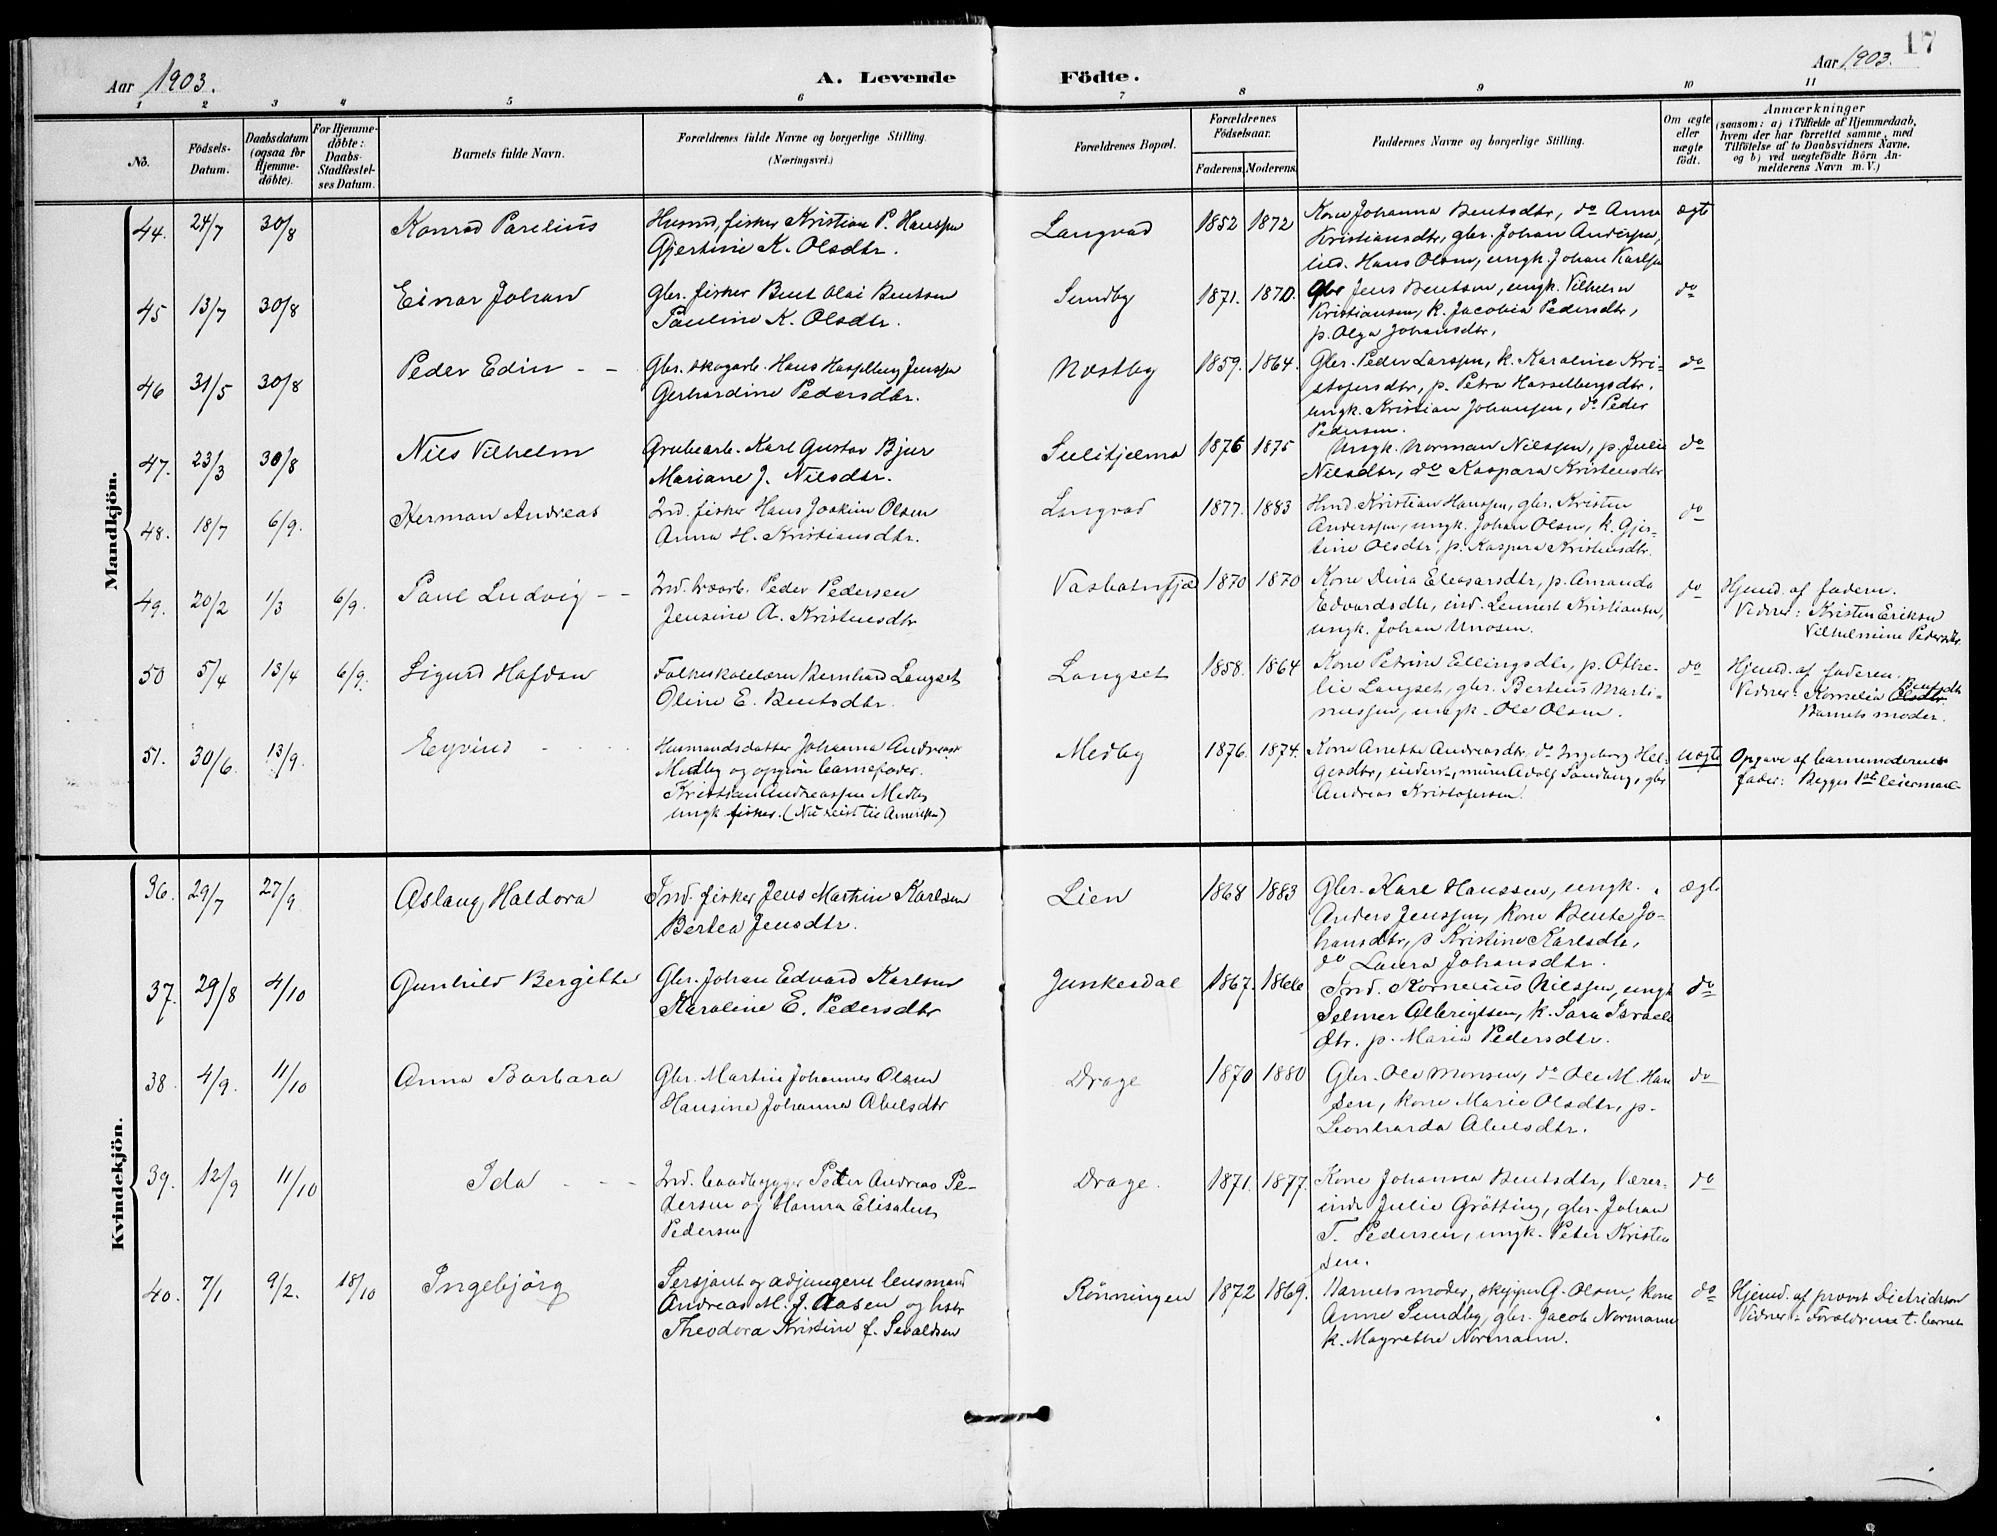 17
Aar 1903.
A. Levende
Födte.
Aar 1903.
1 2 3 4 5 6 7 8 9 10 11
No.
Födsels-Datum.
Daabsdatum (ogsaa for Hjemme-döbte).
For Hjemme-döbte: Daabs-Stadfæstel-ses Datum.
Barnets fulde Navn.
Forældrenes fulde Navne og borgerlige Stilling.
(Næringsvei.)
Forældrenes Bopæl.
Forældrenes Födselsaar.
Faderens. Moderens.
Faddernes Navne og borgerlige Stilling.
Om ægte eller uægte födt.
Anmærkninger
(saasom: a) i Tilfælde af Hjemmedaab,
hvem der har forrettet samme, med
Tilföielse af to Daabsvidners Navne,
og b) ved uægtefödte Börn An-
melderens Navn m. V.)
Mandkjön.
44. 24/7 30/8 Konrad Parelius
Husmd, fisker Kristian P. Hanssen
Gjertine K. Olsdtr.
Langvad 1852 1872
Kone Johanna Bentsdtr, do Anna
Kristiansdtr, gbr. Johan Anderssen,
ind. Hans Olsen, ungk. Johan Karlsen
ægte
45 13/7 30/8 Einar Johan
Gbr. fisker Bent Olai Bentsen
Pauline K. Olsdtr.
Sundby 1871. 1870.
Gbr Jens Bentsen, ungk. Vilhelm
Kristiansen, k. Jacobia Pedersdtr,
p. Olga Johansdtr,
do
46 31/5 30/8 Peder Edin - -
Gbr. skogarb. Hans Hasselberg Jenssen
Gerhardine Pedersdtr.
Næstby 1859. 1864.
Gbr. Peder Larssen, k. Karoline Kri-
stofersdtr, p. Petra Hasselbergsdtr.
ungk. Kristian Johanssen, do Peder
Pedersen.
do
47. 23/3 30/8 Nils Vilhelm
Grubearb. Karl Gustav Bjur
Mariane J. Nilsdtr.
Sulitjelma 1876 1875
Ungk. Norman Nilssen, p. Julie
Nilsdtr, do Kaspara Kristensdtr
do
48. 18/7 6/9. Herman Andreas
Ind. fisker Hans Joakim Olsen
Anna H. Kristiansdtr.
Langvad 1877. 1883
Hmd. Kristian Hanssen, gbr. Kristen
Anderssen, ungk. Johan Olsen, k. Gjer-
tine Olsdtr, p. Kaspara Kristensdtr.
do
49. 20/2 1/3 6/9. Paul Ludvig - -
Ind. Peder Pedersen
Jensine A. Kristensdtr
1870 1870
Kone Dina Eleasarsdtr, p. Amanda
Edvardsdtr, ind. Lennert Kristiansen,
ungk. Johan Unosen.
do
Hjemd. af faderen.
Vidner: Kristen Eriksen
Vilhelmine Pedersdtr.
50 5/4 13/4 6/9. Sigurd Hafdan
Folkeskolelærer Bernhard Langset
Oline E. Bentsdtr.
Langset 1858. 1864
Kone Petrine Ellingsdtr, p. Othe-
lie Langset, gbr. Berteus Marti-
nussen, ungk. Ole Olsen.
do
Hjemd. af faderen.
Vidner: Kornelia Olsdtr. Bentsdtr
Barnets moder.
51. 30/6. 13/9. Eyvind - - -
Husmandsdatter Johanna Andreask
Medby og opgiven barnefader.
Kristian Andreassen Medby
ungk. fisker. (Nu reist til Amerika)
Medby 1876. 1874.
Kone Anette Andreasdtr. do Ingeborg Hel-
gesdtr, inderst, murer Adolf Sandberg, gbr
Andreas Kristofersen.
uægte
Opgave af barnemoderens
fader: Begges 1ste leiermaal
Kvindekjön.
36. 29/7 27/9 Aslaug Haldora
Ind. fisker Jens Martin Karlsen
Bertea Jensdtr.
Lien 1868 1883
Gbr. Karl Hanssen, ungk.
Anders Jenssen, kone Bente Jo-
hansdtr, p Kristine Karlsdtr,
do Laura Johansdtr.
ægte
37. 29/8 4/10 Gunhild Bergithe
Gbr. Johan Edvard Karlsen
Karoline E. Pedersdtr
Junkerdal 1867. 1866
Ind. Kornelius Nilssen, ungk
Selmer Albrigtsen, k. Sara Israels
dtr. p. Maria Pedersdtr.
do
38. 4/9. 11/10 Anna Barbara
Gbr. Martin Johannes Olsen
Hansine Johanna Abelsdtr
Drage 1870 1880
Gbr. Ole Monsen, do Ole M. Han
sen, kone Marie Olsdtr, p.
Leonharda Abelsdtr.
do
39. 12/9 11/10 Ida - - -
Ind. baadbygger Peter Andreas Pe-
dersen og Hanna Elisabet
Pedersen
Drage. 1871. 1877.
Kone Johanna Bentsdtr, lærer-
inde Julie Grötting, gbr. Johan
T. Pedersen, ungk. Peter Kristen
sen.
do
40. 7/1 9/2. 18/10 Ingebjörg
Sersjant og adjungeret lensmand
Andreas M. J. Aasen og hstr
Theodora Kristine f. Sevaldsen
Rönningen 1872 1869.
Barnets moder, skipper G. Olsen, kone
Anne Sundby, gbr. Jacob Normann
k. Magrethe Normann.
do
Hjemd. af provst Dietrichson
Vidner: Forældrene t. barnet